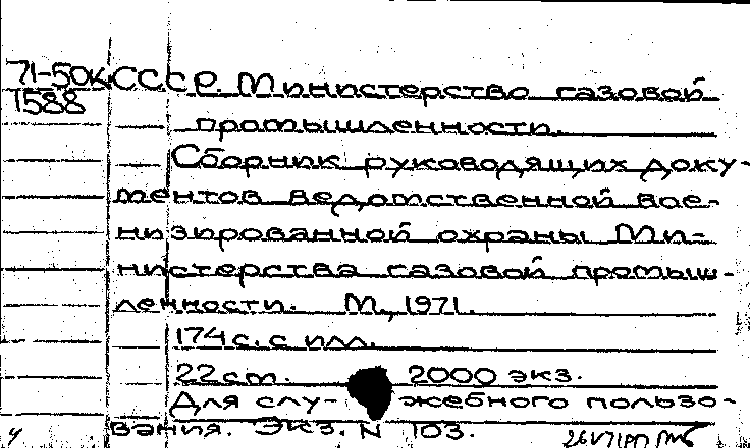 71-50к СССР. Министерство газовой
1588
промышленности.
Сборник руководящих доку-
ментов ведомственной вое-
низированной охраны Ми-
нистерства газовой промыш-
ленности. М., 1971.
174 с. с илл.
22 см. 2000 экз.
Для слу- жебного пользо-
вания. Экз. N 103.